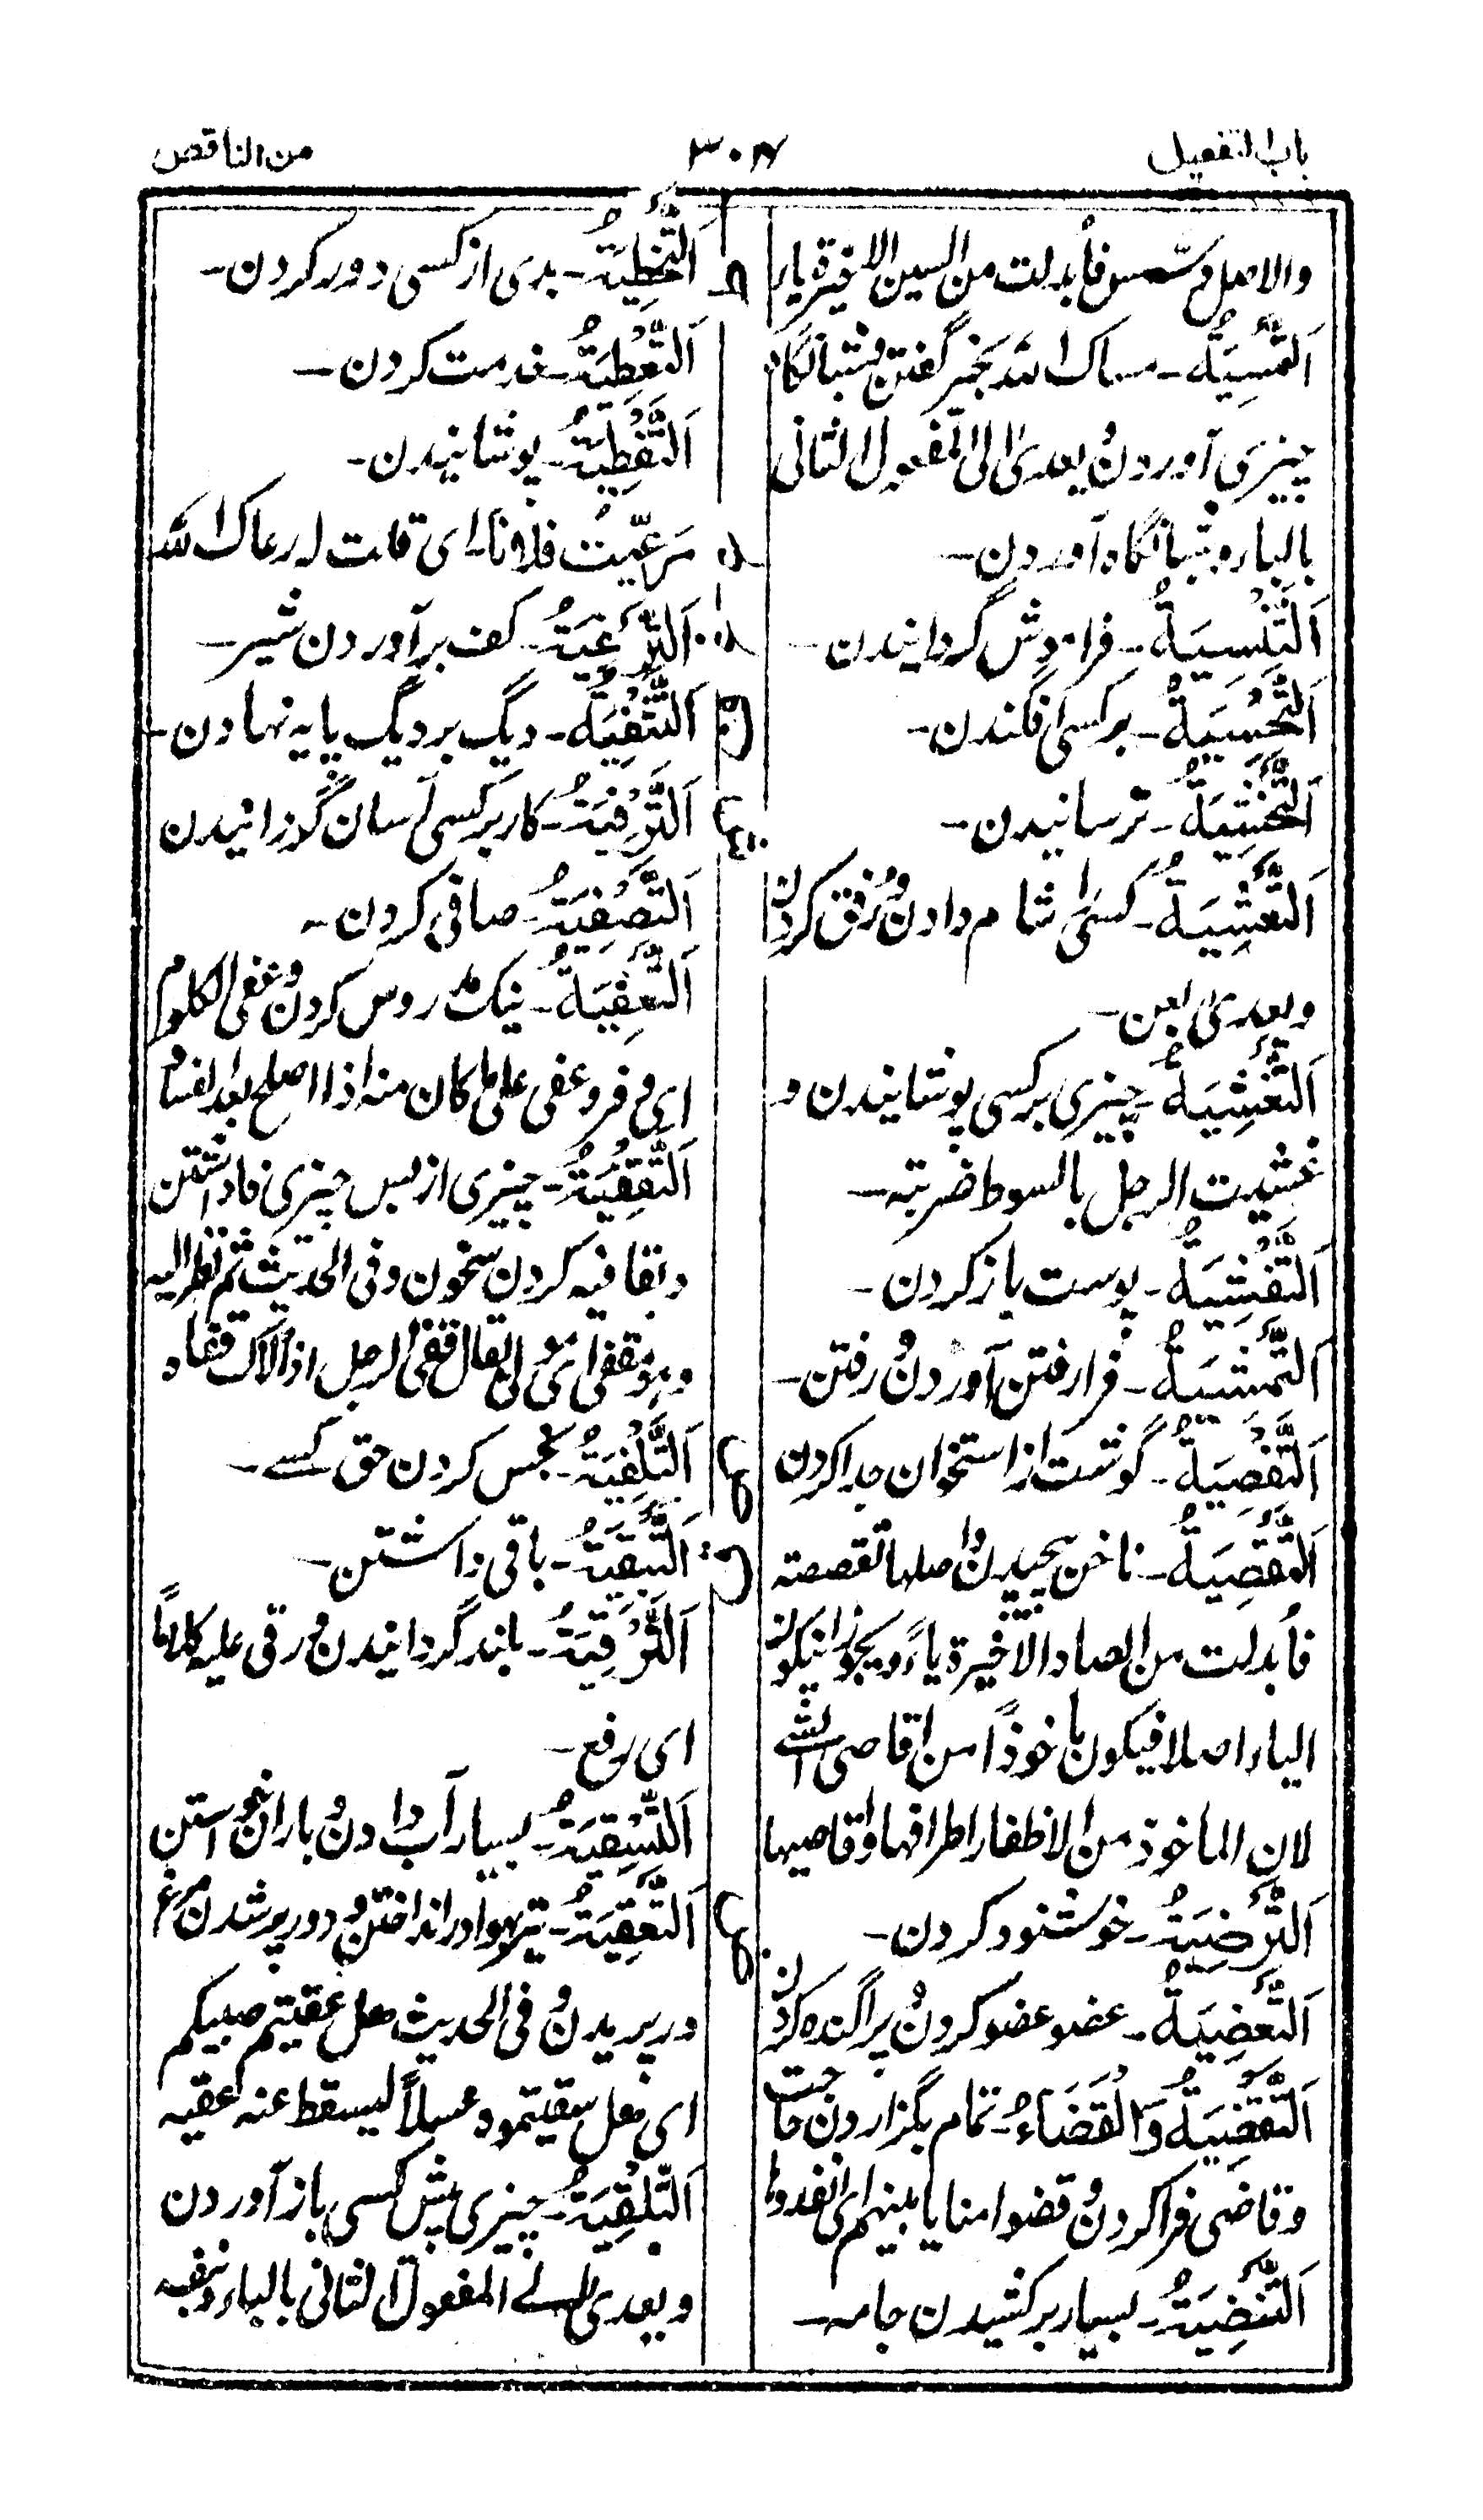 باب التفعیل
۳۰۷
من الناقص
والاصل دسّس فأبدلت من السین الاخیرة یاء
اَلتَّمْسِیَةُ ـ مساک اللہ بخیر گفتن و شبانگاہ
چیزی آوردن و یعدیٰ الی المفعول الثانی
بالباء و شبانگاہ آوردن ـ
اَلتَّنْسِیَةُ ـ فراموش گردانیدن ـ
اَلتَّحْسِیَةُ ـ بر کسی افگندن ـ
اَلتَّخْشِیَةُ ـ ترسانیدن ـ
اَلتَّعْشِیَةُ ـ کسی را شام دادن و رفق کردن
و یعدیٰ بعن ـ
اَلتَّغْشِیَةُ ـ چیزی بر کسی پوشانیدن و
غشیت الرجل بالسوط ضربته ـ
اَلتَّقْشِیَةُ ـ پوست باز کردن ـ
اَلتَّمْشِیَةُ ـ فرا رفتن آوردن و رفتن ـ
اَلتَّفْصِیَةُ ـ گوشت از استخوان جدا کردن
اَلتَّقْصِیَةُ ـ ناخن چیدن و اصلها تقصصة
فأبدلت من الصاد الاخیرة یاءً و یجوز ان یکون
الیاء اصلا فیکون ماخوذًا من اقاصی الشے
لان الماخوذ من الاظفار اطرافها و اقاصیها
اَلتَّرْضِیَةُ ـ خوشنود کردن ـ
اَلتَّعْضِیَةُ ـ عضو عضو کردن و پراگنده کردن
اَلتَّقْضِیَةُ وَالْقَضَاءُ ـ تمام بگزاردن حاجت
و قاضی فرا کردن و قضوا منایا بینهم ای انفذوها
اَلتَّنْضِیَةُ ـ بسیار برکشیدن جامہ ـ
ط
اَلتَّخْطِیَةُ ـ بدی از کسی دور کردن ـ
اَلتَّعْطِیَةُ ـ خدمت کردن ـ
اَلتَّغْطِیَةُ ـ پوشانیدن ـ
رَعَّیْتُ فلانا ـ ای قلت لہ رعاک اللہ
اَلتَّرْغِیَةُ ـ کف برآوردن شیر ـ
ف
اَلتَّثْفِیَةُ ـ دیگ بر دیگ پایہ نهادن ـ
اَلتَّرْفِیَةُ ـ کار بر کسی آسان گزرانیدن
اَلتَّصْفِیَةُ ـ صافی کردن ـ
اَلتَّعْفِیَةُ ـ نیک مدروس کردن و عفی الکلوم
ای وفر و عفی علی ما کان منه اذا اصلح بعد الفساد
اَلتَّقْفِیَةُ ـ چیزی از پس چیزی فا داشتن
و بقافیہ کردن سخون و فی الحدیث ثم نظر الیه
و هو مقفی ای مولی یقال قفی الرجل اذا ولاک قفاه
اَلتَّلْفِیَةُ ـ بخس کردن حق کسے ـ
ق
اَلتَّبْقِیَةُ ـ باقی داشتن ـ
اَلتَّرْقِیَةُ ـ بلند گردانیدن و رقی علیه کلامًا
ای رفع ـ
اَلتَّسْقِیَةُ ـ بسیار آب دادن و باران خواستن
اَلتَّعْقِیَةُ ـ تیر بهوا در انداختن و دور پر شدن مرغ
در پریدن و فی الحدیث هل عقیتم صبیکم
ای هل سقیتموه عسلًا لیسقط عنه عقیه
اَلتَّلْقِیَةُ ـ چیزی پیش کسی باز آوردن
و یعدی الے المفعول الثانی بالباء و بنفسه